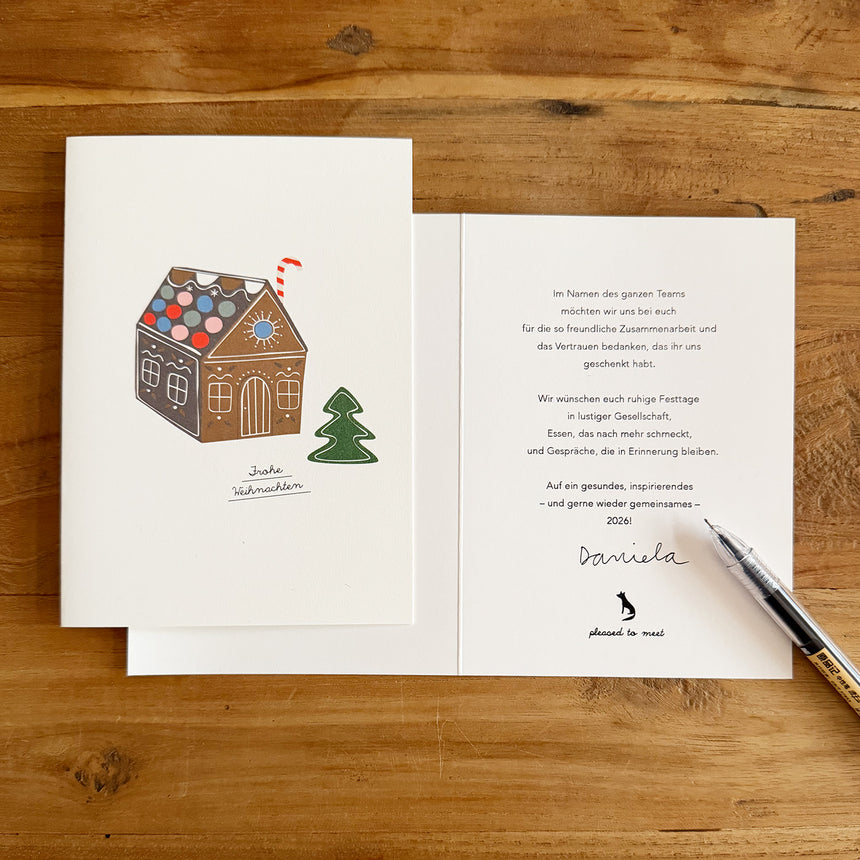 Frohe
Weihnachten
Im Namen des ganzen Teams
möchten wir uns bei euch
für die so freundliche Zusammenarbeit und
das Vertrauen bedanken, das ihr uns
geschenkt habt.
Wir wünschen euch ruhige Festtage
in lustiger Gesellschaft,
Essen, das nach mehr schmeckt,
und Gespräche, die in Erinnerung bleiben.
Auf ein gesundes, inspirierendes
– und gerne wieder gemeinsames –
2026!
Daniela
pleased to meet